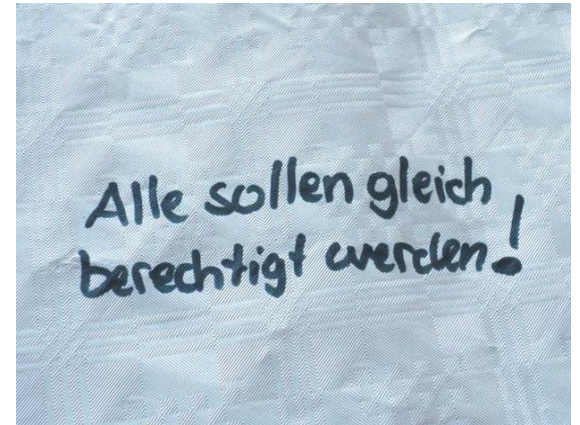 Alle sollen gleich
berechtigt werden!